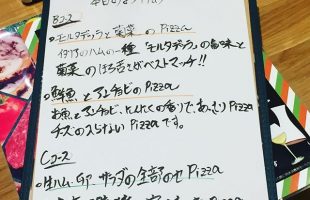 Bコース
・モルタデッラと菊菜のPizza
イタリアのハムの一種「モルタデッラ」の旨味と
菊菜のほろ苦さがベストマッチ!!
・鮮魚とアンチョビのPizza
お魚とアンチョビ、にんにくの香りで、あっさりPizza
チーズの入らないPizzaです。
Cコース
・生ハム、卵、サラダの全部のせPizza